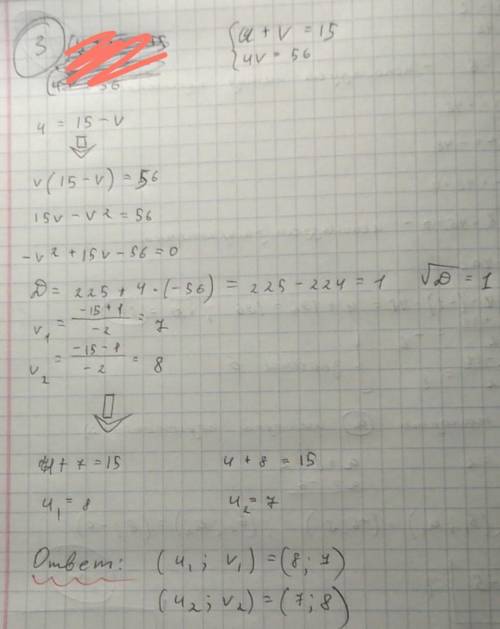 3
{ u + v = 15
uv = 56
u = 15 - v
v(15 - v) = 56
15v - v² = 56
-v² + 15v - 56 = 0
D = 225 + 4 · (-56) = 225 - 224 = 1 √D = 1
v₁ = (-15 + 1)/(-2) = 7
v₂ = (-15 - 1)/(-2) = 8
u + 7 = 15 u + 8 = 15
u₁ = 8 u₂ = 7
Ответ: (u₁; v₁) = (8; 7)
(u₂; v₂) = (7; 8)